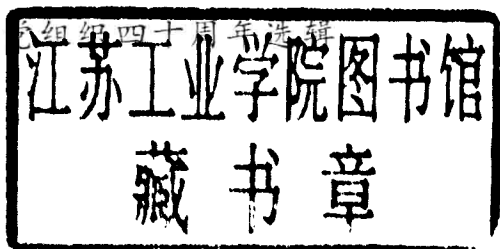 党组织四十周年选辑
江苏工业学院图书馆
藏书章